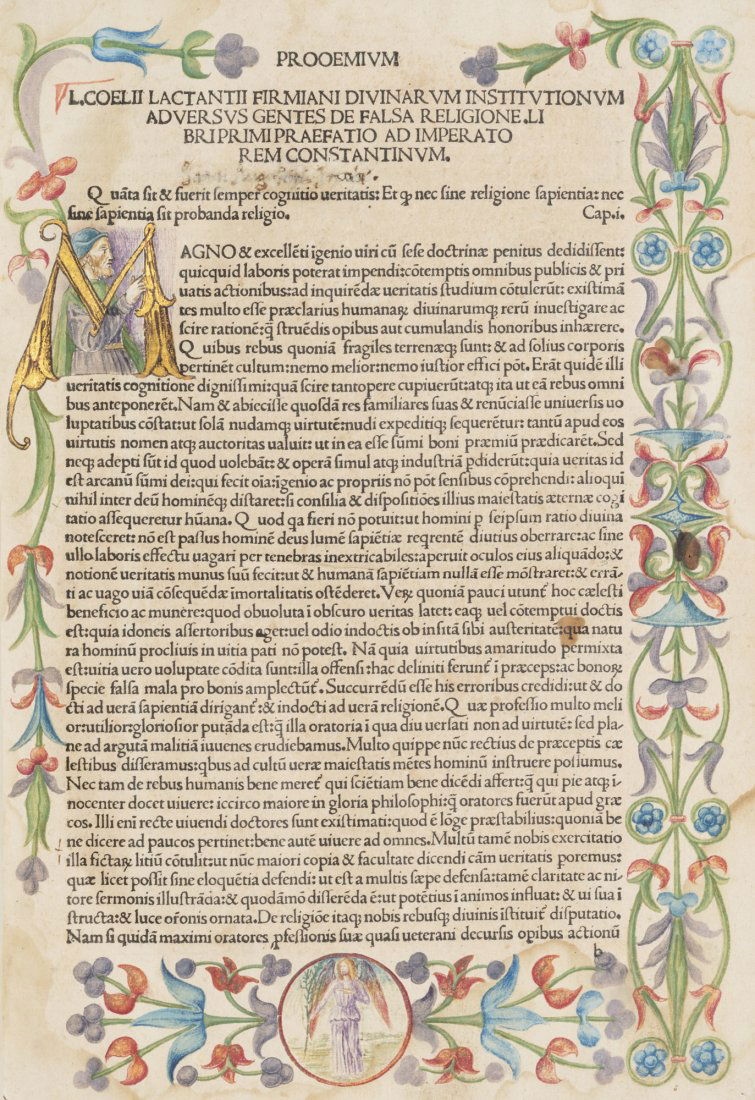 PROOEMIVM
L.COELII LACTANTII FIRMIANI DIVINARVM INSTITVTIONVM
ADVERSVS GENTES DE FALSA RELIGIONE.LI
BRI PRIMI PRAEFATIO AD IMPERATO
REM CONSTANTINVM.
Quãta sit & fuerit semper cognitio ueritatis: Et ꝙ nec sine religione sapientia: nec
sine sapientia sit probanda religio. Cap.i.
MAGNO & excellẽti ĩgenio uiri cũ sese doctrinæ penitus dedidissent:
quicquid laboris poterat impendi:cõtemptis omnibus publicis & pri
uatis actionibus:ad inquirẽdæ ueritatis studium cõtulerũt: existimã
tes multo esse præclarius humanaꝝ diuinarumqꝫ rerũ inuestigare ac
scire rationẽ:q̃ struẽdis opibus aut cumulandis honoribus inhærere.
Quibus rebus quoniã fragiles terrenæqꝫ sunt: & ad solius corporis
pertinẽt cultum:nemo melior:nemo iustior effici põt. Erãt quidẽ illi
ueritatis cognitione dignissimi:quã scire tantopere cupiuerũt:atqꝫ ita ut eã rebus omni
bus anteponerẽt.Nam & abiecisse quosdã res familiares suas & renũciasse uniuersis uo
luptatibus cõstat:ut solã nudamqꝫ uirtutẽ:nudi expeditiqꝫ sequerẽtur: tantũ apud eos
uirtutis nomen atqꝫ auctoritas ualuit: ut in ea esse sũmi boni præmiũ prædicarẽt.Sed
neqꝫ adepti sũt id quod uolebãt: & operã simul atqꝫ industriã ꝑdiderũt:quia ueritas id
est arcanũ sũmi dei:qui fecit oĩa:ĩgenio ac propriis nõ põt sensibus cõprehendi: alioqui
nihil inter deũ hominẽqꝫ distaret:si consilia & dispositiões illius maiestatis æternæ cogi
tatio assequeretur hũana. Quod qa fieri nõ potuit:ut homini ꝑ seipsum ratio diuina
notesceret: nõ est passus hominẽ deus lumẽ sapiẽtiæ reqrentẽ diutius oberrare:ac sine
ullo laboris effectu uagari per tenebras inextricabiles:aperuit oculos eius aliquãdo:&
notionẽ ueritatis munus suũ fecit:ut & humanã sapiẽtiam nullã esse mõstraret:& errã-
ti ac uago uiã cõsequẽdæ ĩmortalitatis ostẽderet. Veꝝ quoniã pauci utunt̃ hoc cælesti
beneficio ac munere:quod obuoluta ĩ obscuro ueritas latet: eaqꝫ uel cõtemptui doctis
est:quia idoneis assertoribus eget:uel odio indoctis ob insitã sibi austeritatẽ:qua natu
ra hominũ procliuis in uitia pati nõ potest. Nã quia uirtutibus amaritudo permixta
est:uitia uero uoluptate cõdita sunt:illa offensi:hac deliniti ferunt̃ ĩ præceps:ac bonoꝝ
specie falsa mala pro bonis amplectũt̃. Succurrẽdũ esse his erroribus credidi:ut & do
cti ad uerã sapientiã dirigant̃:& indocti ad uerã religionẽ.Quæ professio multo meli
or:utilior:gloriosior putãda est:q̃ illa oratoria ĩ qua diu uersati non ad uirtutẽ: sed pla-
ne ad argutã malitiã iuuenes erudiebamus.Multo quippe nũc rectius de præceptis cæ
lestibus disseramus:qbus ad cultũ ueræ maiestatis mẽtes hominũ instruere possumus.
Nec tam de rebus humanis bene meret̃ qui sciẽtiam bene dicẽdi affert:q̃ qui pie atqꝫ ĩ-
nocenter docet uiuere: iccirco maiore in gloria philosophi:q̃ oratores fuerũt apud græ
cos. Illi enĩ recte uiuendi doctores sunt existimati:quod ẽ lõge præstabilius:quoniã be
ne dicere ad paucos pertinet:bene autẽ uiuere ad omnes.Multũ tamẽ nobis exercitatio
illa fictaꝝ litiũ cõtulit:ut nũc maiori copia & facultate dicendi cãm ueritatis poremus:
quæ licet possit sine eloquẽtia defendi: ut est a multis sæpe defensa:tamẽ claritate ac ni-
tore sermonis illustrãda:& quodãmõ disserẽda ẽ:ut potẽtius ĩ animos influat: & ui sua ĩ
structa:& luce or̃onis ornata.De religiõe itaqꝫ nobis rebusqꝫ diuinis ĩstituit̃ disputatio.
Nam si quidã maximi oratores ꝓfessionis suæ quasi ueterani decursis opibus actionũ
b